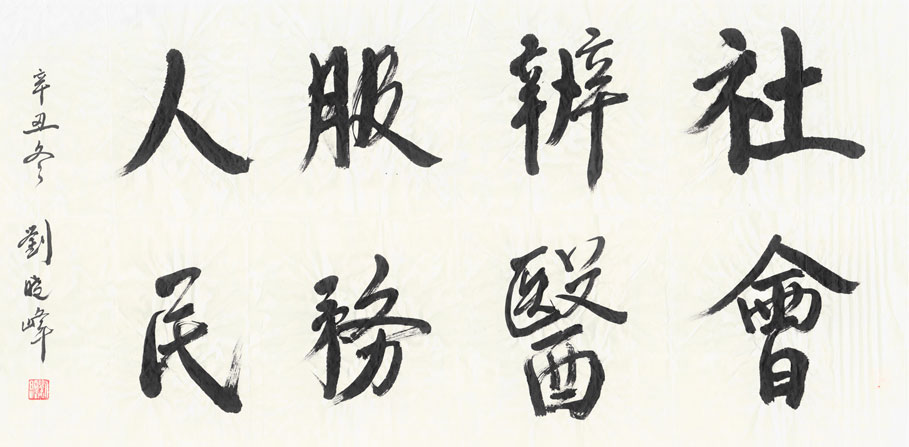 社會
辦醫
服務
人民
辛丑冬 劉曉峰